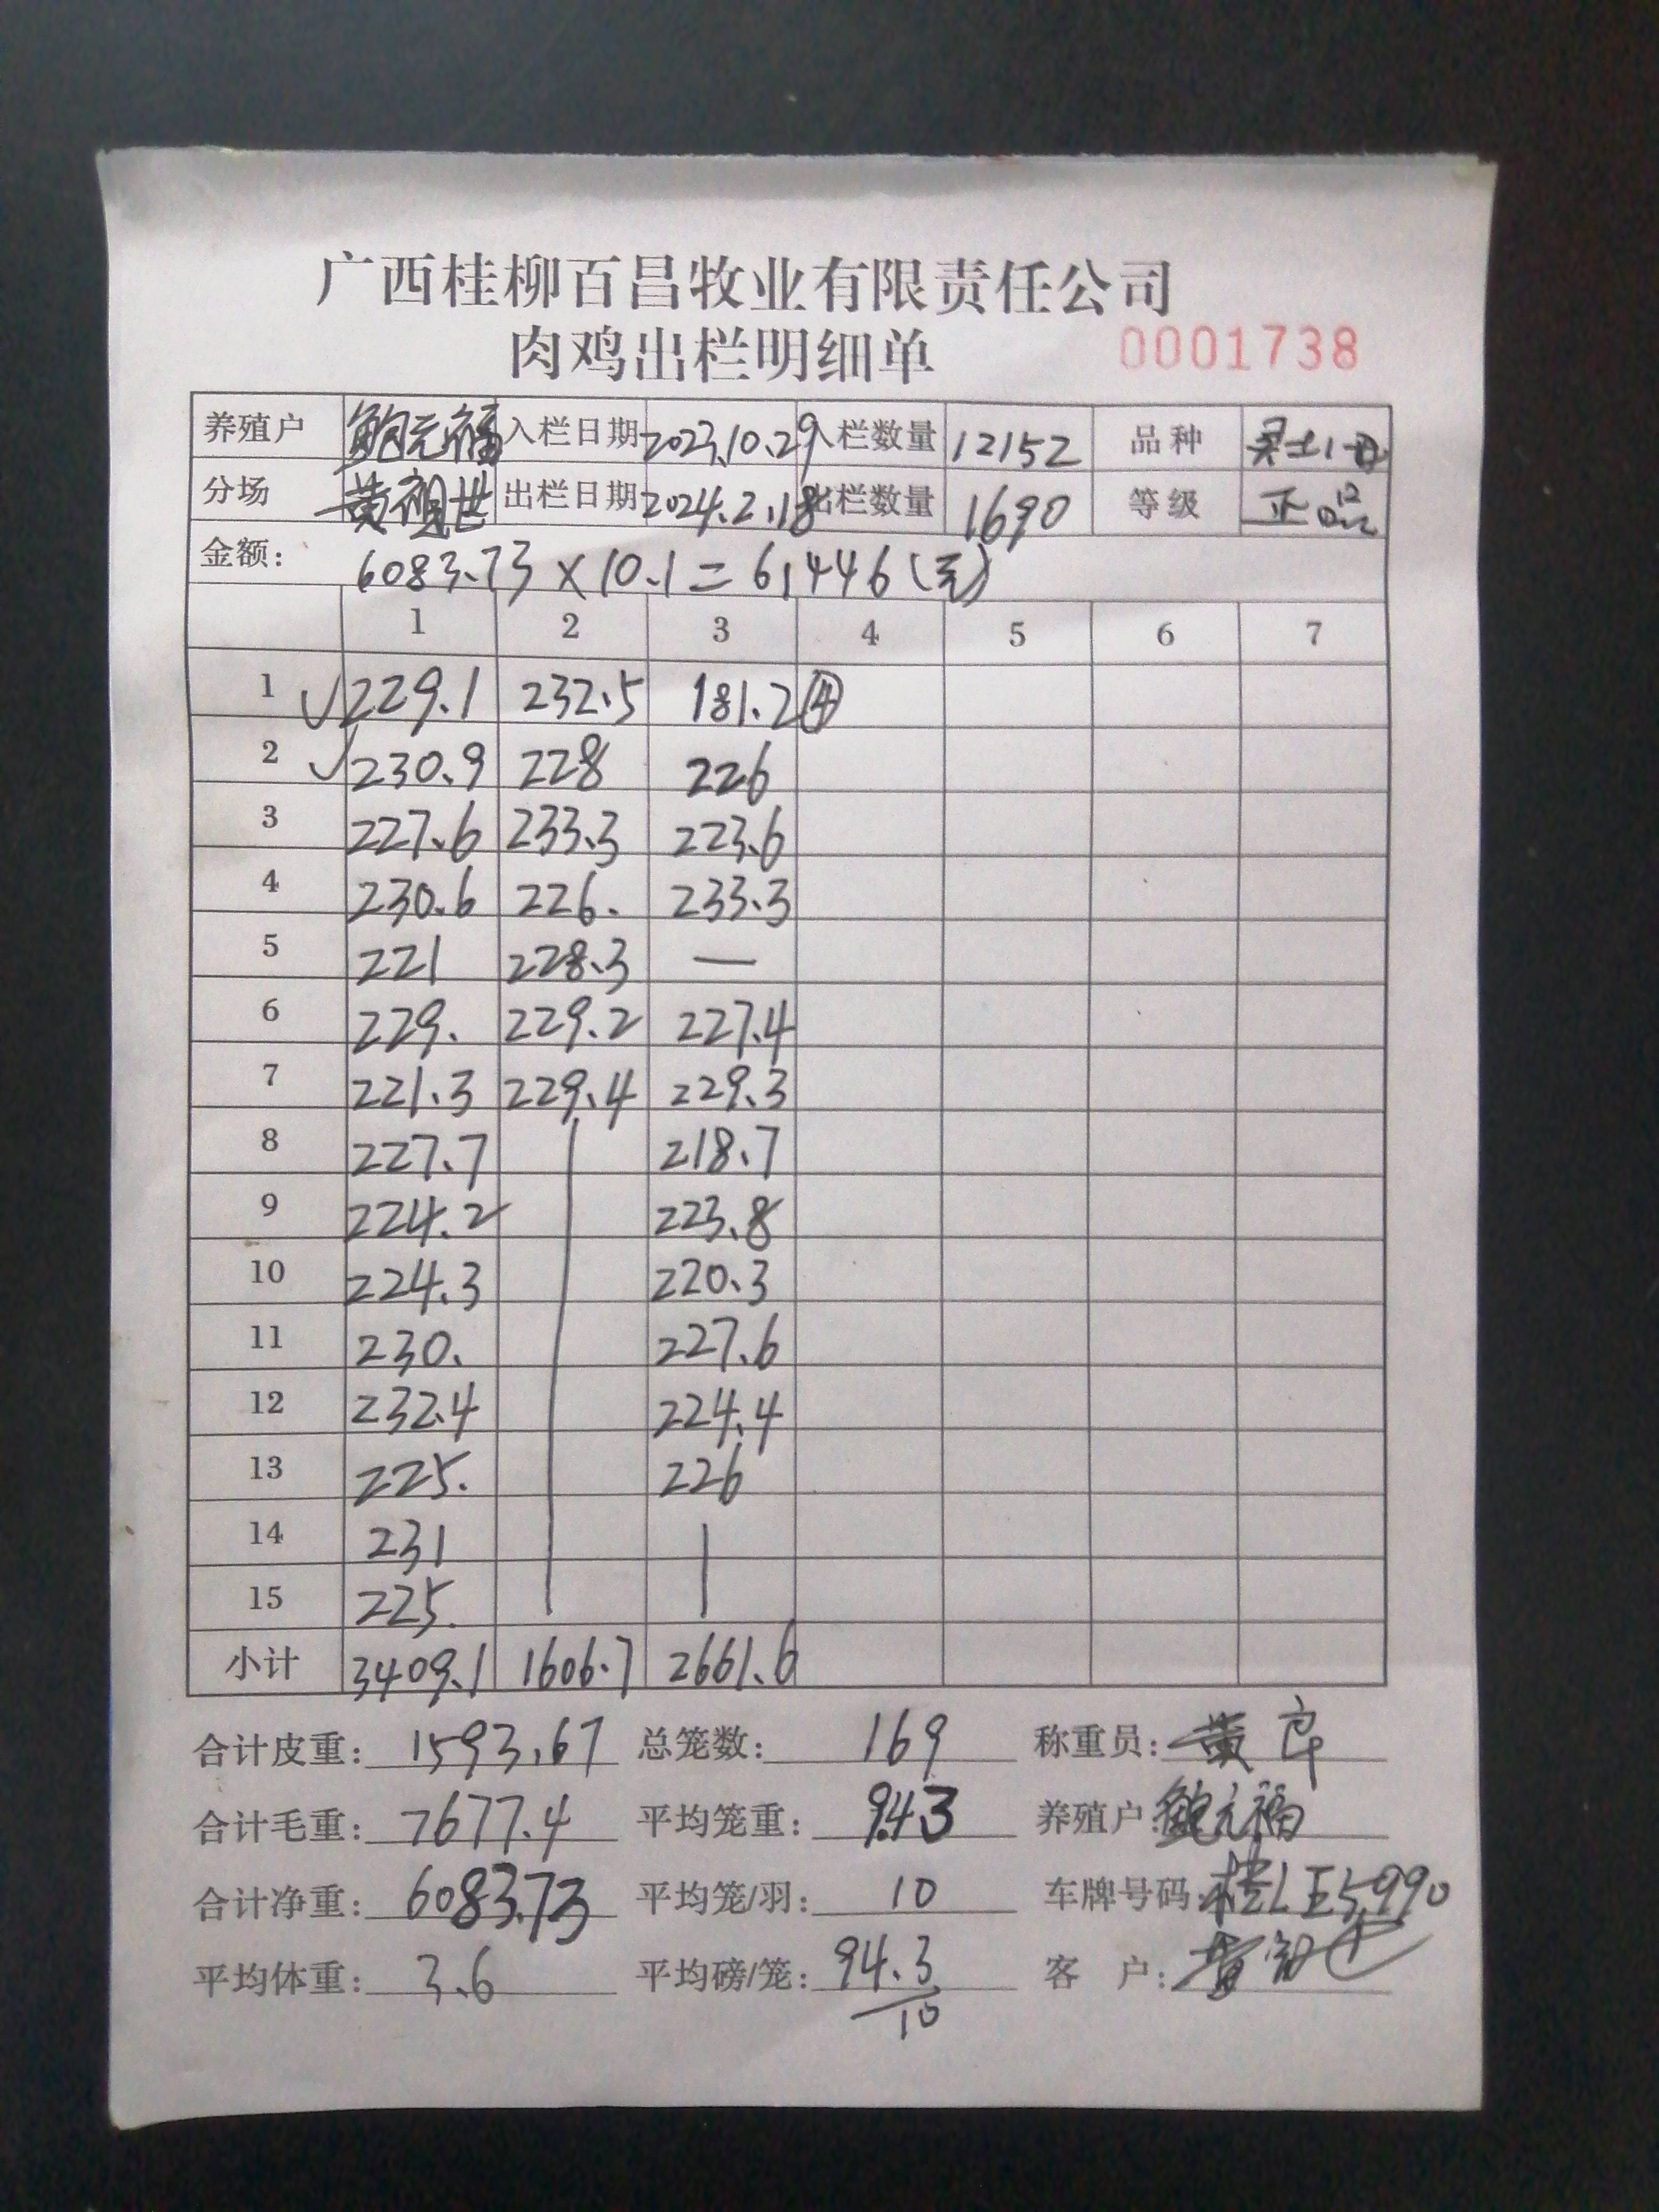 广西桂柳百昌牧业有限责任公司
肉鸡出栏明细单 0001738
养殖户 鲍元福 入栏日期 2023.10.29 入栏数量 12152 品种 灵土1-母
分场 黄祖世 出栏日期 2024.2.18 出栏数量 1690 等级 正品
金额: 6083.73×10.1=61446(元)
1 2 3 4 5 6 7
1 √229.1 232.5 181.2④
2 √230.9 228 226
3 227.6 233.3 223.6
4 230.6 226. 233.3
5 221 228.3 —
6 229. 229.2 227.4
7 221.3 229.4 229.3
8 227.7 218.7
9 224.2 223.8
10 224.3 220.3
11 230. 227.6
12 232.4 224.4
13 225. 226
14 231
15 225.
小计 3409.1 1606.7 2661.6
合计皮重: 1593.67 总笼数: 169 称重员: 黄
合计毛重: 7677.4 平均笼重: 9.43 养殖户: 鲍元福
合计净重: 6083.73 平均笼/羽: 10 车牌号码: 桂LE5990
平均体重: 3.6 平均磅/笼: 94.3/10 客 户: